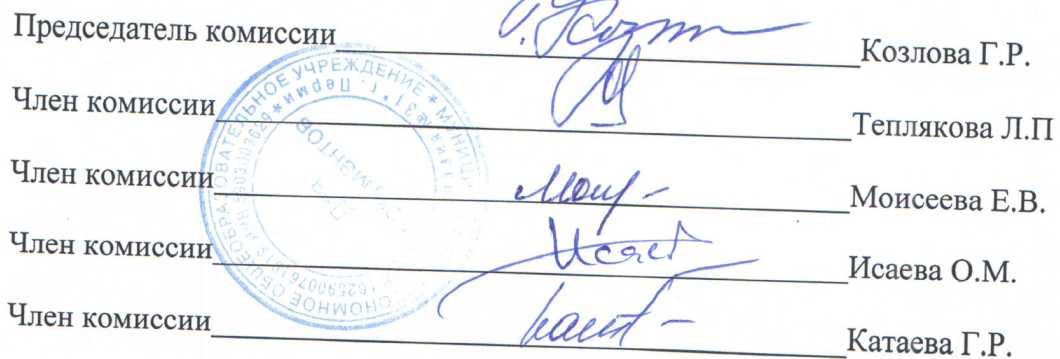 Председатель комиссии Козлова Г.Р.
Член комиссии Теплякова Л.П
Член комиссии Моисеева Е.В.
Член комиссии Исаева О.М.
Член комиссии Катаева Г.Р.
УЧРЕЖДЕНИЕ * МУНИЦИ
г. Перми *